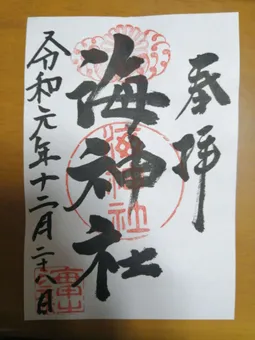 奉拝
海神社
令和元年十二月二十八日
海神社